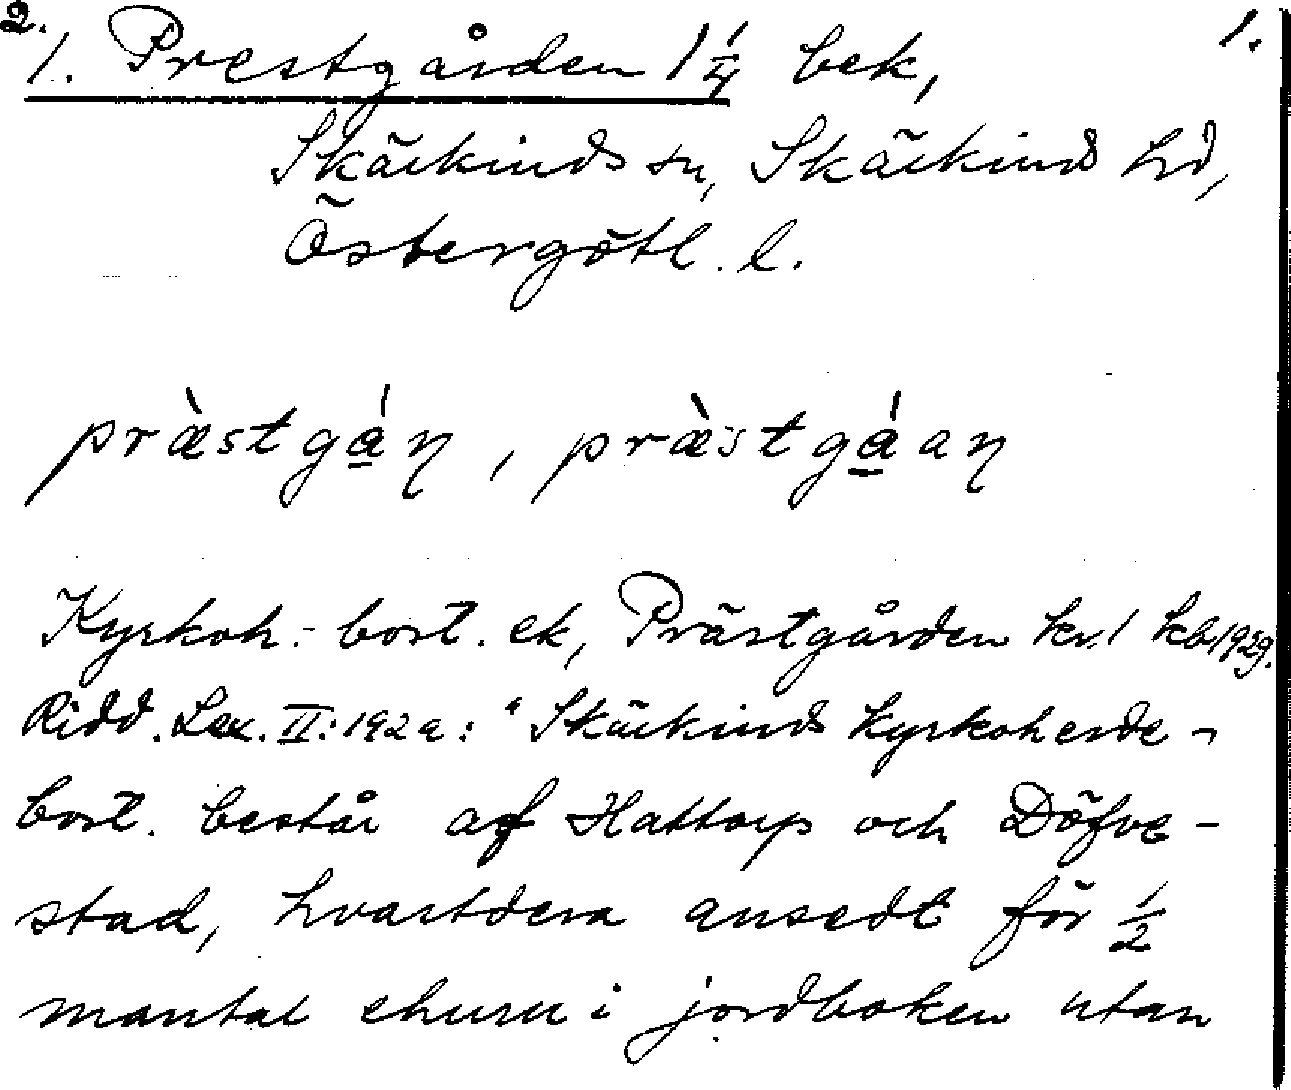 2. 1.
1. Prestgården 1 1/4 bek,
Skärkinds sn, Skärkind hd,
Östergötl. l.
præ̀stgá̲ɳ, præ̀stgá̲aɳ
Kyrkoh.-bost. ek, Prästgården kv. 1 kb 1929.
Ridd. Lex. II: 192 a: "Skärkinds kyrkoherde-
bost. består af Hattorp och Döfve-
stad, hvartdera ansedt för 1/2
mantal ehuru i jordboken utan